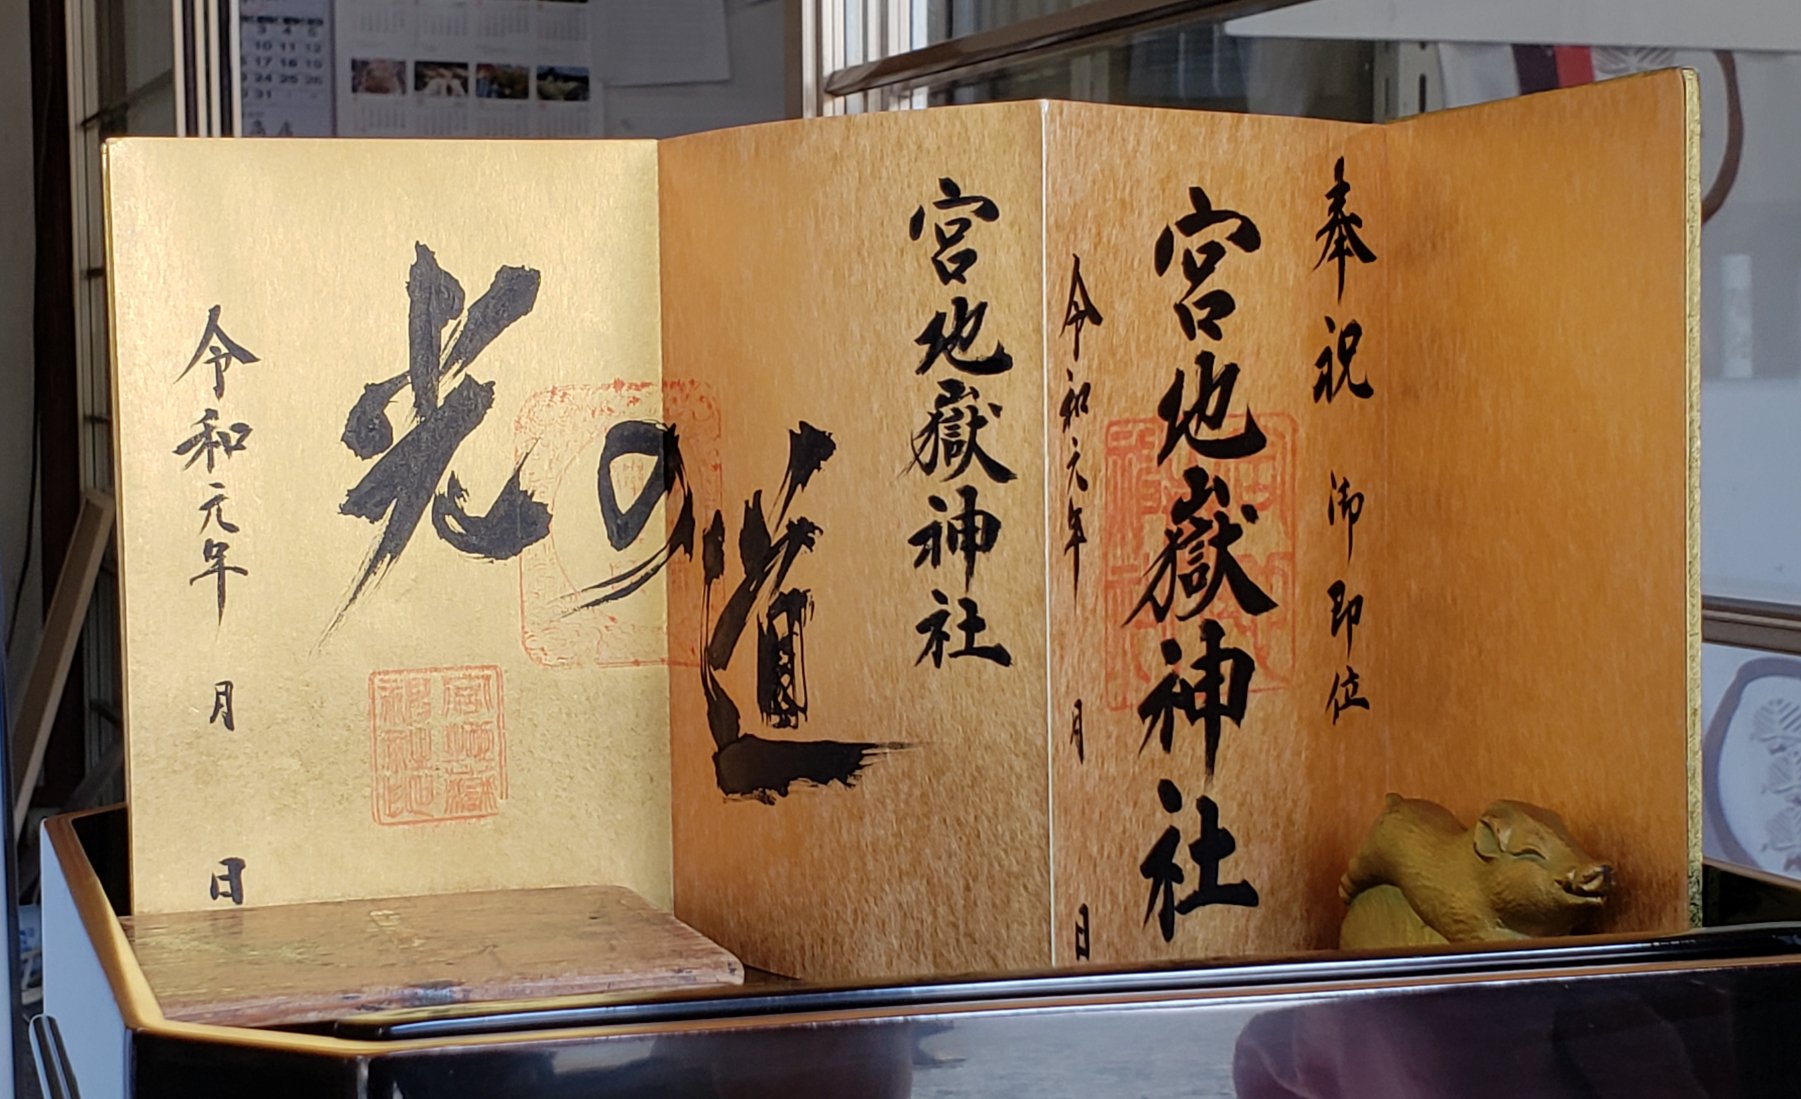 奉祝 御即位
宮地嶽神社
令和元年 月 日
宮地嶽神社
光の道
令和元年 月 日